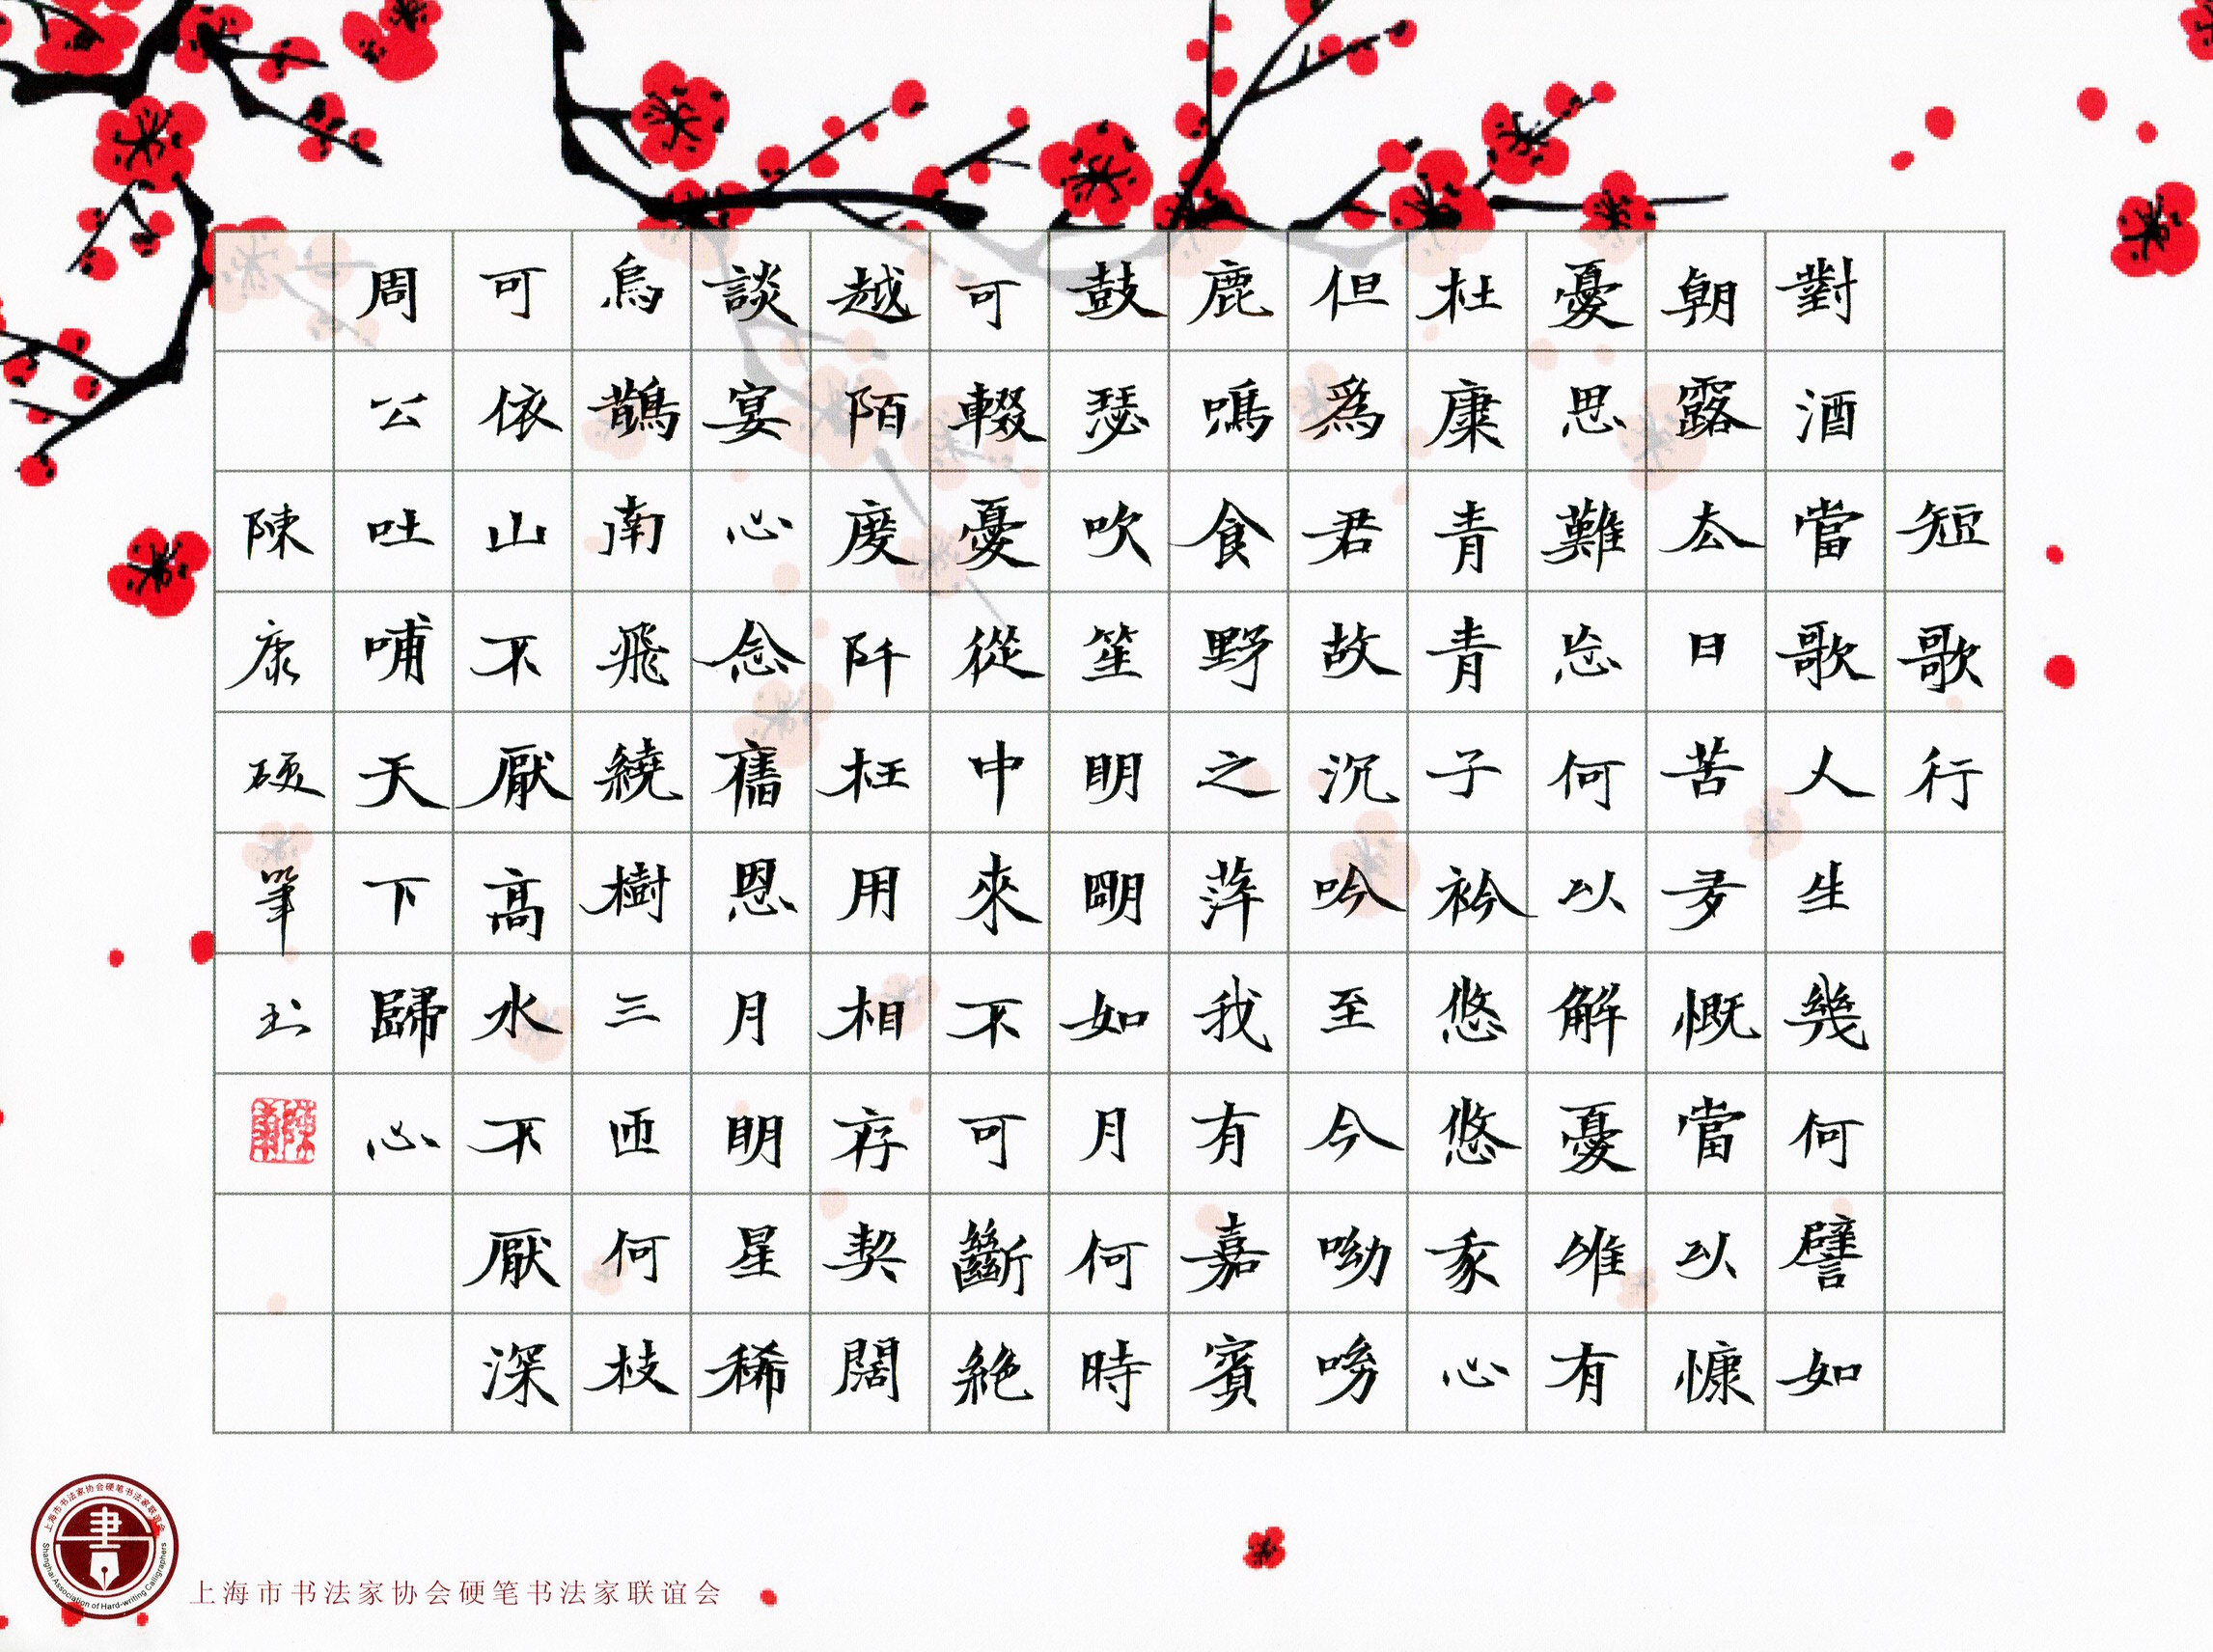 短歌行
對酒當歌人生幾何譬如
朝露厺日苦多慨當以慷
憂思難忘何以解憂唯有
杜康青青子衿悠悠我心
但爲君故沉吟至今呦呦
鹿鳴食野之苹我有嘉賓
鼓瑟吹笙明明如月何時
可輟憂從中來不可斷絶
越陌度阡枉用相存契闊
談宴心念舊恩月明星稀
烏鵲南飛繞樹三匝何枝
可依山不厭高水不厭深
周公吐哺天下歸心
陳康硬筆书
上海市书法家协会硬笔书法家联谊会
Shanghai Association of Hard-writing Calligraphers
書
上海市书法家协会硬笔书法家联谊会